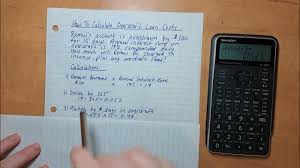 How To Calculate Overdraft Loan Costs
Remus's account is overdrawn by $100
for 15 days. Annual interest rate on
overdraft is 19% compounded daily.
How much will Remus be charged in
interest plus any overdraft fees?
Calculations
1) Amount Borrowed x Annual Interest Rate
$100 19
2) Divide by 365
19 ÷ 365 = 0.052
3) Multiply by # days in overdraft
x 15 = 0.78
SHARP